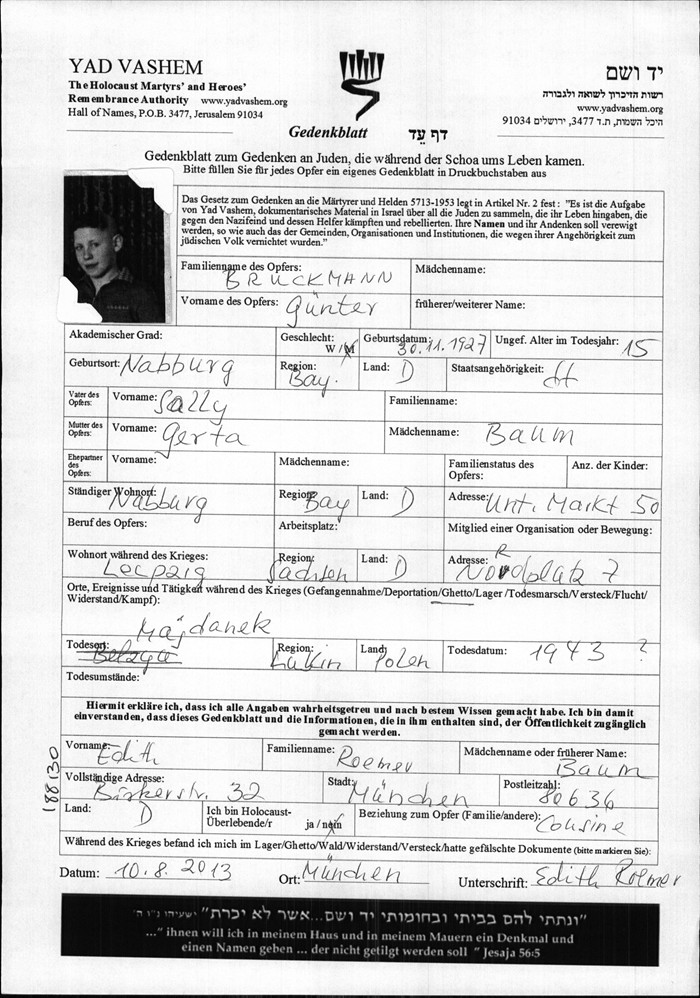 YAD VASHEM
The Holocaust Martyrs' and Heroes'
Remembrance Authority www.yadvashem.org
Hall of Names, P.O.B. 3477, Jerusalem 91034
יד ושם
רשות הזיכרון לשואה ולגבורה
www.yadvashem.org
היכל השמות, ת.ד 3477, ירושלים 91034
Gedenkblatt דף עֵד
Gedenkblatt zum Gedenken an Juden, die während der Schoa ums Leben kamen.
Bitte füllen Sie für jedes Opfer ein eigenes Gedenkblatt in Druckbuchstaben aus
Das Gesetz zum Gedenken an die Märtyrer und Helden 5713-1953 legt in Artikel Nr. 2 fest : "Es ist die Aufgabe
von Yad Vashem, dokumentarisches Material in Israel über all die Juden zu sammeln, die ihr Leben hingaben, die
gegen den Nazifeind und dessen Helfer kämpften und rebellierten. Ihre Namen und ihr Andenken soll verewigt
werden, so wie auch das der Gemeinden, Organisationen und Institutionen, die wegen ihrer Angehörigkeit zum
jüdischen Volk vernichtet wurden."
Familienname des Opfers: BRUCKMANN Mädchenname:
Vorname des Opfers: Günter früherer/weiterer Name:
Akademischer Grad: Geschlecht: W / M Geburtsdatum: 30.11.1927 Ungef. Alter im Todesjahr: 15
Geburtsort: Nabburg Region: Bay. Land: D Staatsangehörigkeit: dt
Vater des Opfers: Vorname: Sally Familienname:
Mutter des Opfers: Vorname: Gerta Mädchenname: Baum
Ehepartner des Opfers: Vorname: Mädchenname: Familienstatus des Opfers: Anz. der Kinder:
Ständiger Wohnort: Nabburg Region: Bay Land: D Adresse: Unt. Markt 50
Beruf des Opfers: Arbeitsplatz: Mitglied einer Organisation oder Bewegung:
Wohnort während des Krieges: Leipzig Region: Sachsen Land: D Adresse: Nordplatz 7
Orte, Ereignisse und Tätigkeit während des Krieges (Gefangennahme/Deportation/Ghetto/Lager /Todesmarsch/Versteck/Flucht/
Widerstand/Kampf):
Majdanek
Todesort: Region: Land: Polen Todesdatum: 1943 ?
Todesumstände:
Hiermit erkläre ich, dass ich alle Angaben wahrheitsgetreu und nach bestem Wissen gemacht habe. Ich bin damit
einverstanden, dass dieses Gedenkblatt und die Informationen, die in ihm enthalten sind, der Öffentlichkeit zugänglich
gemacht werden.
Vorname: Edith Familienname: Roemer Mädchenname oder früherer Name: Baum
Vollständige Adresse: Birkerstr. 32 Stadt: München Postleitzahl: 80636
Land: D Ich bin Holocaust-Überlebende/r ja / nein Beziehung zum Opfer (Familie/andere): Cousine
Während des Krieges befand ich mich im Lager/Ghetto/Wald/Widerstand/Versteck/hatte gefälschte Dokumente (bitte markieren Sie):
Datum: 10.8.2013 Ort: München Unterschrift: Edith Roemer
188130
"ונתתי להם בביתי ובחומותי יד ושם...אשר לא יכרת" ישעיהו נ"ו ה'
..." ihnen will ich in meinem Haus und in meinem Mauern ein Denkmal und
einen Namen geben ... der nicht getilgt werden soll " Jesaja 56:5